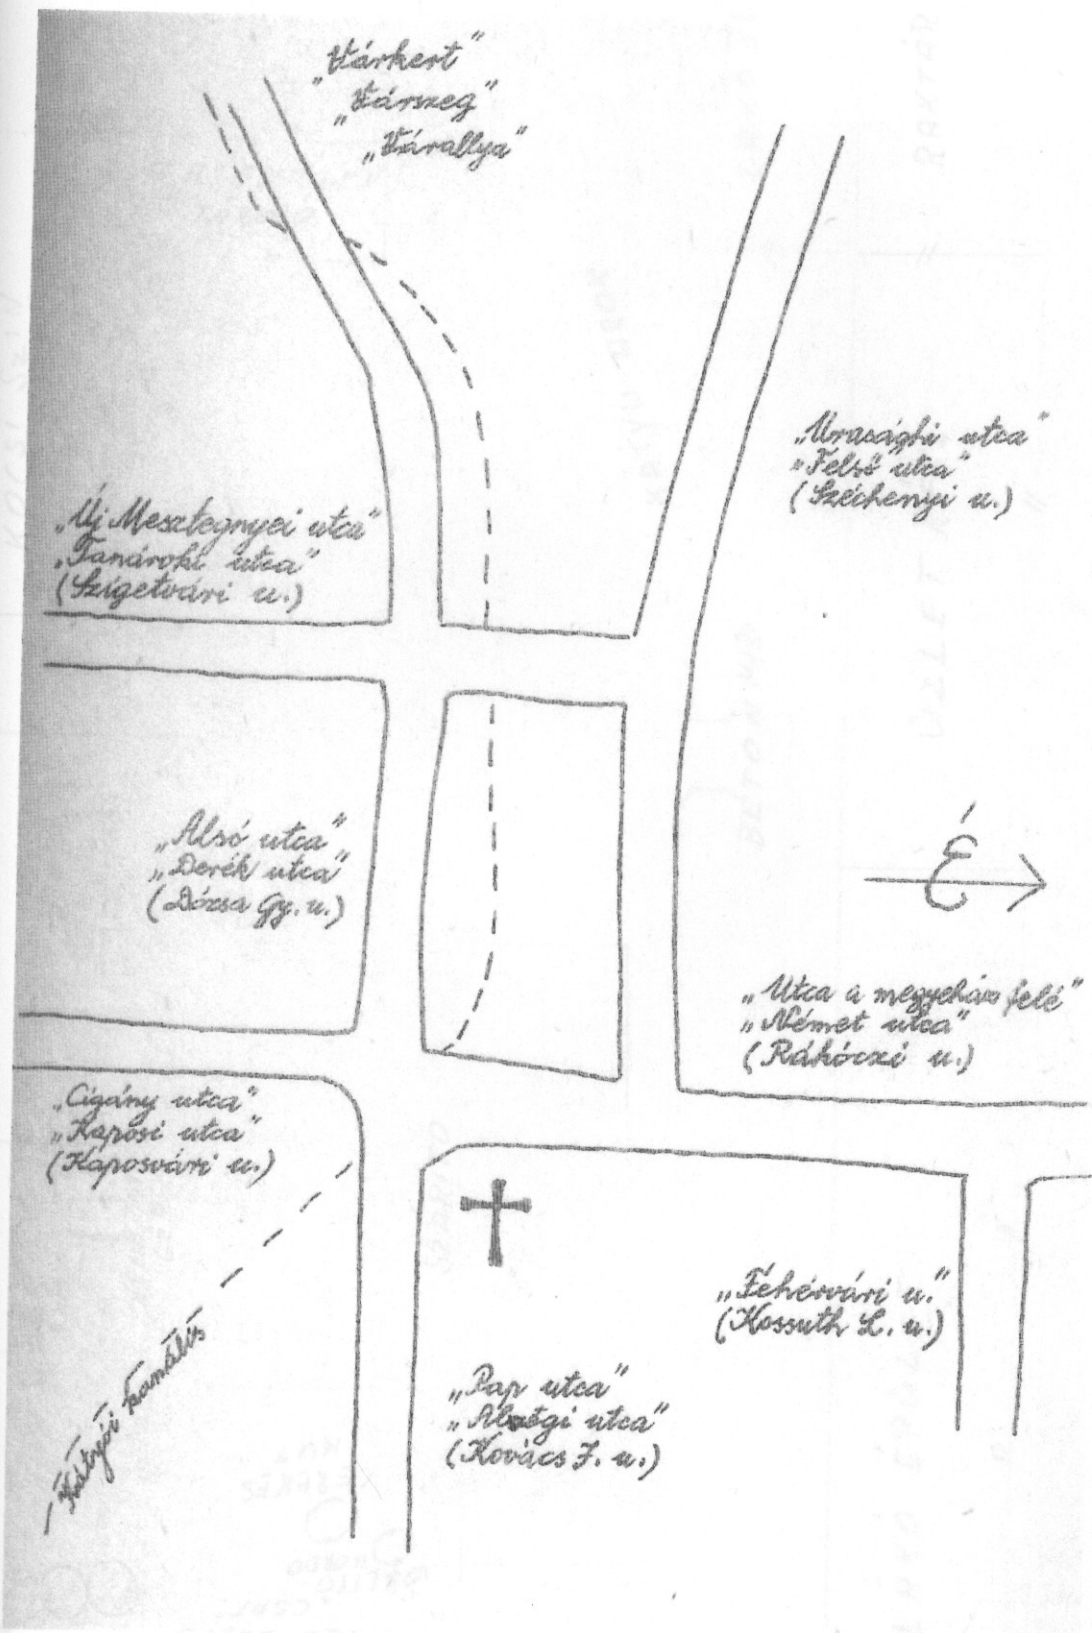 „Várkert”
„Várszeg”
„Várallya”
„Urasághi utca”
„Felső utca”
(Széchenyi u.)
„Új Mesztegnyei utca”
„Tanároki utca”
(Szigetvári u.)
„Alsó utca”
„Derék utca”
(Dózsa Gy. u.)
É
„Utca a megyeház felé”
„Német utca”
(Rákóczi u.)
„Cigány utca”
„Kaposi utca”
(Kaposvári u.)
„Fehérvári u.”
(Kossuth L. u.)
„Pap utca”
„Alvégi utca”
(Kovács J. u.)
kanális